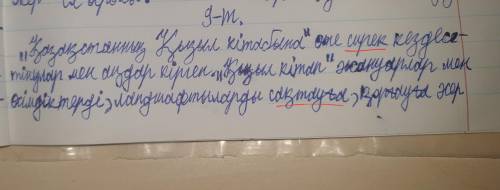 9-т.
„Қазақстанның Қызыл кітабына" өте сирек кездесе-
тін құлар мен аңдар кірген. „Қызыл кітап" жануарлар мен
өсімдіктерді, ландшафтыларды сақтауға, қорғауға жер